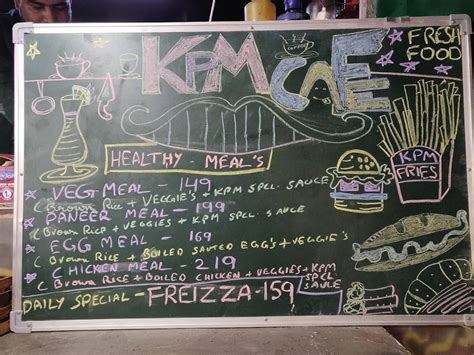 KPM CAFE
FRESH
FOOD
HEALTHY - MEAL'S
KPM
FRIES
VEG MEAL - 149
(Brown Rice + VEGGIE'S + KPM SPCL. SAUCE
PANEER MEAL - 199
(Brown Rice + VEGGIES + KPM SPCL. SAUCE
EGG MEAL - 169
(Brown Rice + BOILED SAUTED EGG'S + VEGGIE'S
CHICKEN MEAL - 219
(Brown RICE + BOILED CHICKEN + VEGGIES + KPM
SPCL
SAUCE
DAILY SPECIAL - FREIZZA - 159